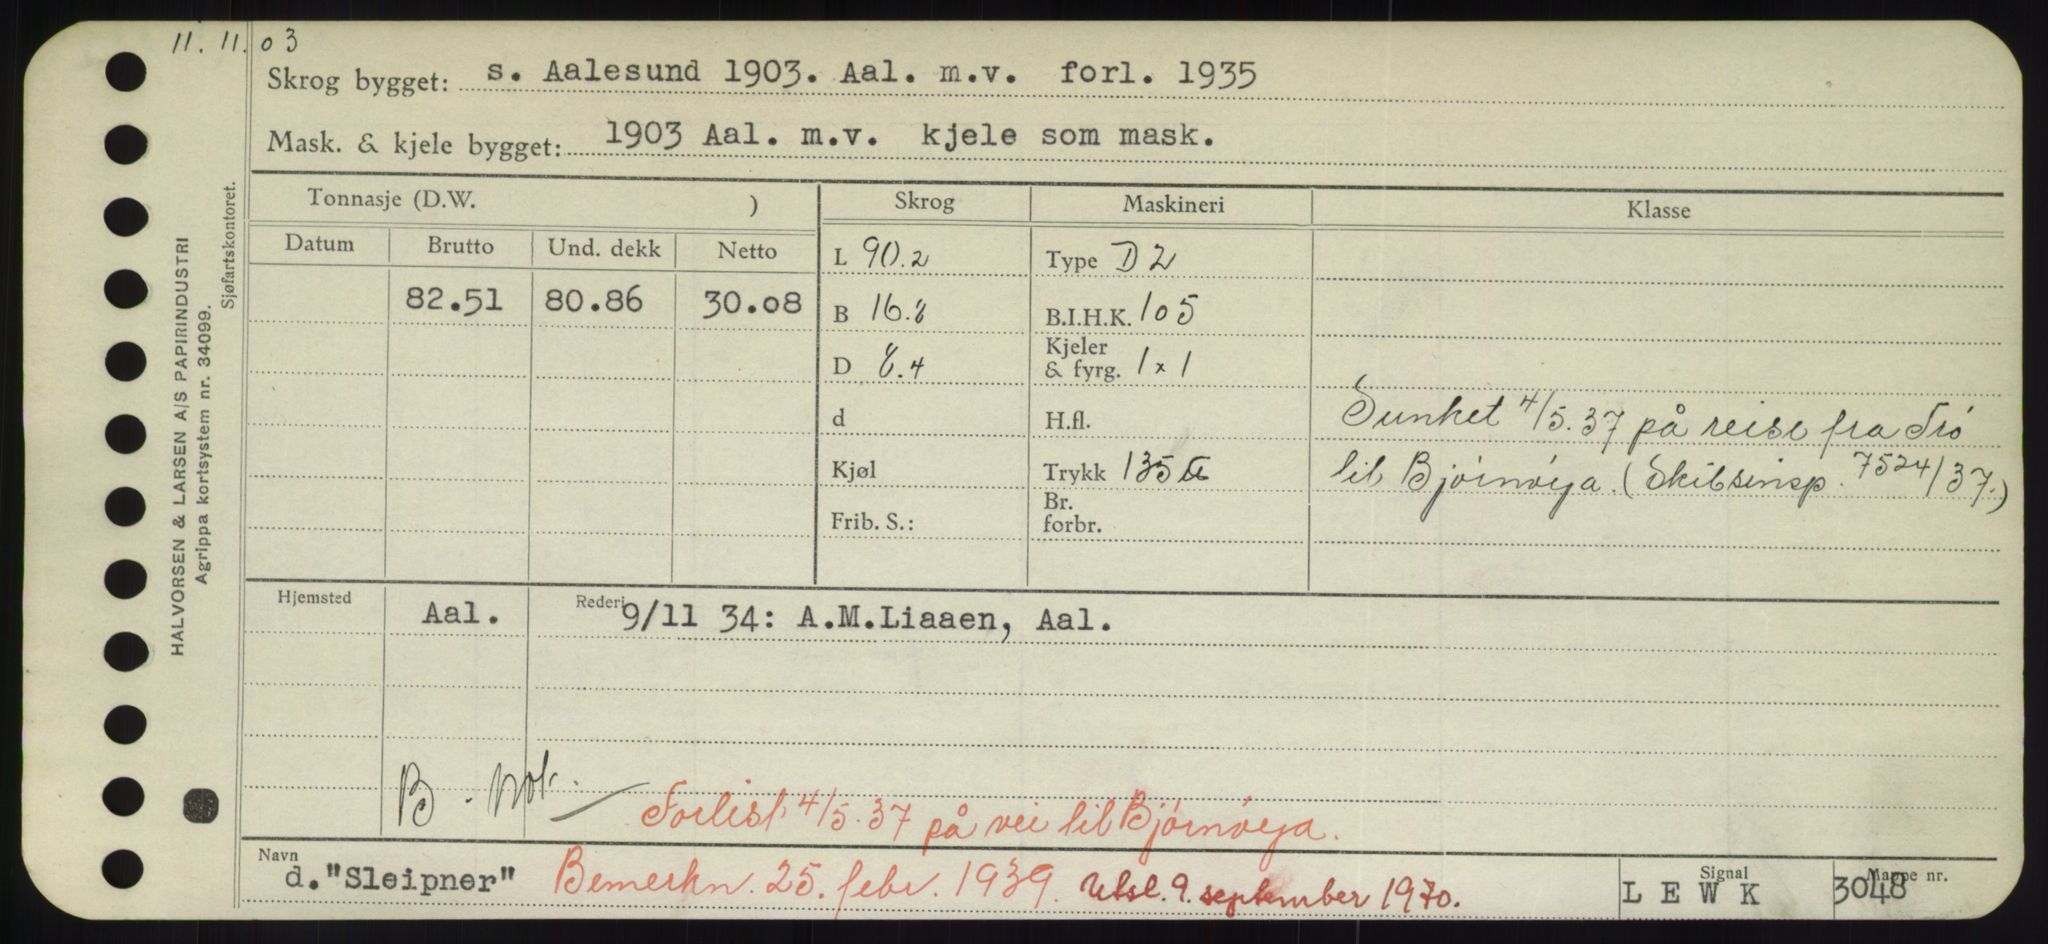 11. 11. 03
Skrog bygget: s. Aalesund 1903. Aal. m.v. forl. 1935
Mask. & kjele bygget: 1903 Aal. m.v. kjele som mask.
HALVORSEN & LARSEN A/S PAPIRINDUSTRI
Agrippa kortsystem nr. 34099.
Sjøfartskontoret.
Tonnasje (D.W. ) Skrog Maskineri Klasse
Datum Brutto Und. dekk Netto
82.51 80.86 30.08
L 90.2 Type D2
B 16.8 B.I.H.K. 105
D 8.4 Kjeler & fyrg. 1 x 1
d H.fl.
Kjøl Trykk 135
Frib. S.: Br. forbr.
Sunket 4/5.37 på reise fra Trö
til Björnöya. (Skibsinsp. 7524/37.)
Hjemsted Aal. Rederi 9/11 34: A.M.Liaaen, Aal.
B.
Forlist 4/5.37 på vei til Björnöya.
Navn d."Sleipner" Bemerkn. 25. febr. 1939. Utsl. 9. september 1970. Signal L E W K Mappe nr. 3048